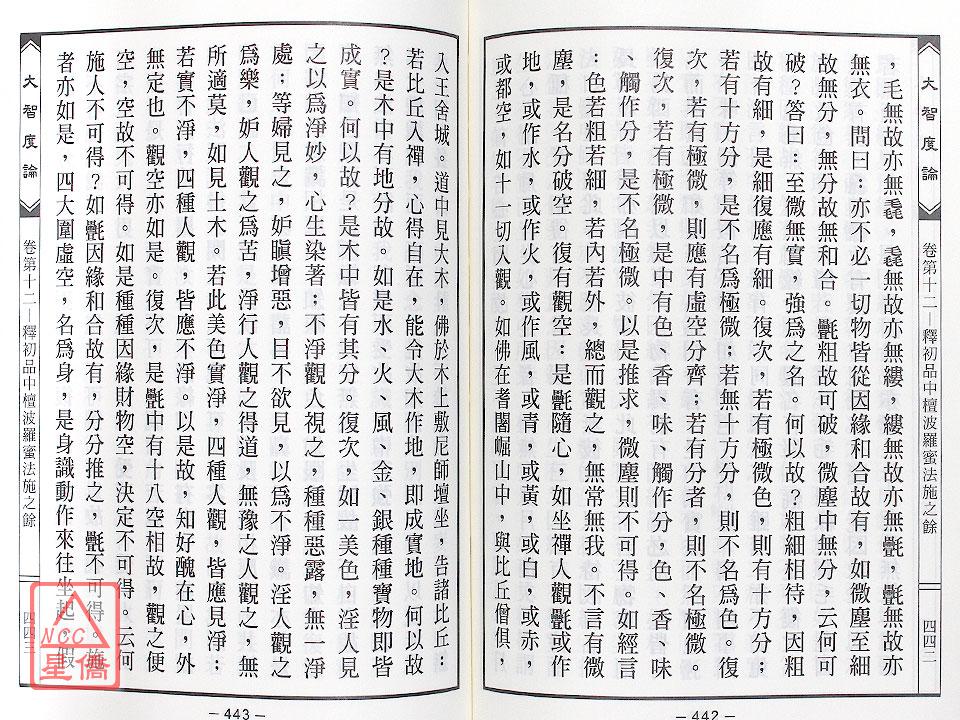 大智度論
卷第十二—釋初品中檀波羅蜜法施之餘
四四二
，毛無故亦無毳，毳無故亦無縷，縷無故亦無氎，氎無故亦
無衣。問曰：亦不必一切物皆從因緣和合故有，如微塵至細
故無分，無分故無和合。氎粗故可破，微塵中無分，云何可
破？答曰：至微無實，強為之名。何以故？粗細相待，因粗
故有細，是細復應有細。復次，若有極微色，則有十方分；
若有十方分，是不名為極微；若無十方分，則不名為色。復
次，若有極微，則應有虛空分齊；若有分者，則不名極微。
復次，若有極微，是中有色、香、味、觸作分，色、香、味
、觸作分，是不名極微。以是推求，微塵則不可得。如經言
：色若粗若細，若內若外，總而觀之，無常無我。不言有微
塵，是名分破空。復有觀空：是氎隨心，如坐禪人觀氎或作
地，或作水，或作火，或作風，或青，或黃，或白，或赤，
或都空，如十一切入觀。如佛在耆闍崛山中，與比丘僧俱，
—442—
入王舍城。道中見大木，佛於木上敷尼師壇坐，告諸比丘：
若比丘入禪，心得自在，能令大木作地，即成實地。何以故
？是木中有地分故。如是水、火、風、金、銀種種寶物即皆
成實。何以故？是木中皆有其分。復次，如一美色，淫人見
之以為淨妙，心生染著；不淨觀人視之，種種惡露，無一淨
處；等婦見之，妒瞋增惡，目不欲見，以為不淨。淫人觀之
為樂，妒人觀之為苦，淨行人觀之得道，無豫之人觀之，無
所適莫，如見土木。若此美色實淨，四種人觀，皆應見淨；
若實不淨，四種人觀，皆應不淨。以是故，知好醜在心，外
無定也。觀空亦如是。復次，是氎中有十八空相故，觀之便
空，空故不可得。如是種種因緣財物空，決定不可得。云何
施人不可得？如氎因緣和合故有，分分推之，氎不可得。施
者亦如是，四大圍虛空，名為身，是身識動作來往坐起，假
大智度論
卷第十二—釋初品中檀波羅蜜法施之餘
四四三
—443—
NCC
星僑